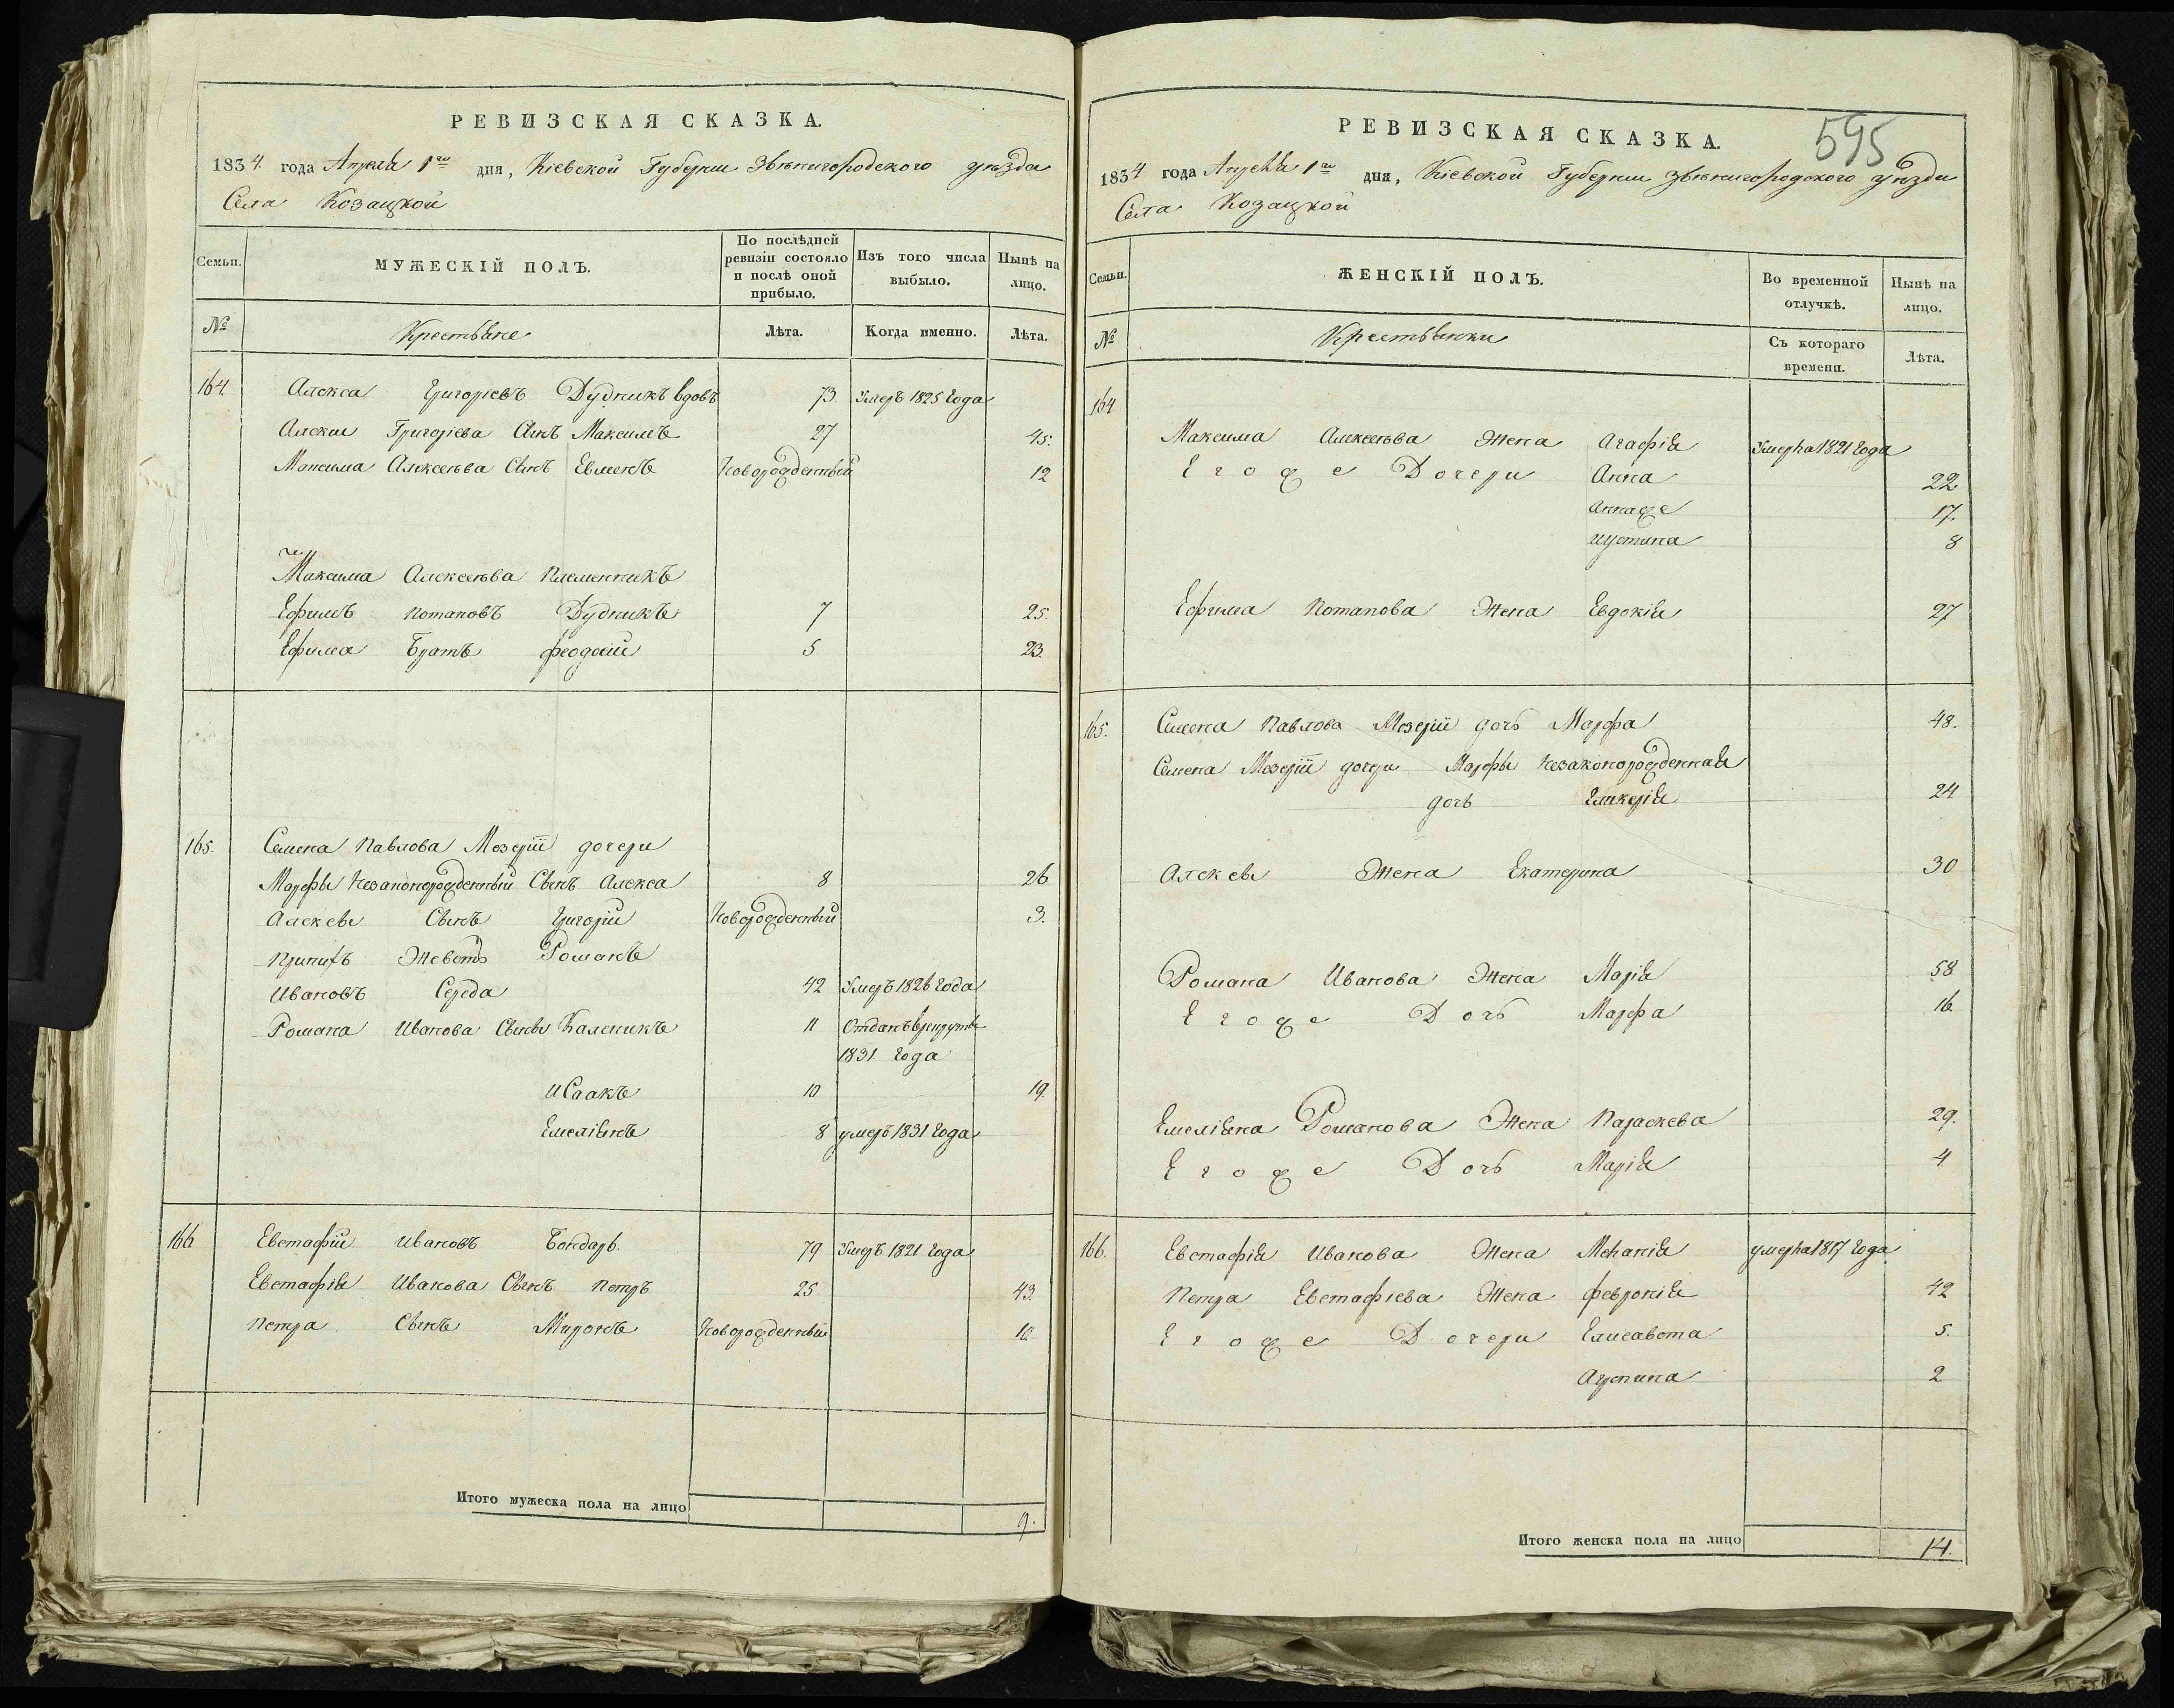 РЕВИЗСКАЯ СКАЗКА.
1834 года Апреля 1го дня, Кіевской Губерніи Звѣнигородского уѣзда
Села Козацкой
Семьи.
МУЖЕСКІЙ ПОЛЪ.
По послѣдней ревизіи состояло и послѣ оной прибыло.
Изъ того числа выбыло.
Нынѣ на лицо.
№
Крестьяне
Лѣта.
Когда именно.
Лѣта.
164. Алекса Григоріевъ Дудникъ вдовъ 73. Умеръ 1825 года
Алексы Григоріева Сынъ Максимъ 27 45.
Максима Алексеѣва Сынъ Евмекъ Новорожденный 12
Максима Алексеѣва Племенникъ
Ефимъ Потаповъ Дудникъ 7 25.
Ефима Братъ Феодосій 5 23.
165. Семена Павлова Мозерій дочери
Марфы Незаконорожденный Сынъ Алекса 8 26
Алексы Сынъ Григорій Новорожденный 3.
Романъ
Ивановъ Середа 42 Умеръ 1826 года
Романа Иванова Сыны Каленикъ 11 Отданъ в рекруты
1831 года
Исаакъ 10 19.
Емеліянъ 8 умеръ 1831 года
166 Евстафій Ивановъ Бондарь. 79 Умеръ 1821 года
Евстафія Иванова Сынъ Петръ 25. 43.
Петра Сынъ Миронъ Новорожденный 10
Итого мужеска пола на лицо 9.
595
РЕВИЗСКАЯ СКАЗКА.
1834 года Апреля 1го дня, Кіевской Губерніи Звѣнигородского уѣзда
Села Козацкой
Семьи.
ЖЕНСКІЙ ПОЛЪ.
Во временной отлучкѣ.
Нынѣ на лицо.
№
Крестьянки
Съ котораго времени.
Лѣта.
164
Максима Алексеѣва Жена Агафія Умерла 1821 года
Его же Дочери Анна 22
Анна же 17.
Иустина 8
Ефима Потапова Жена Евдокія 27
165. Семена Павлова Мозерій дочь Марфа 48.
Семена Мозерій дочери Марфы Незаконорожденная
дочь Гликерія 24
Алексы Жена Екатерина 30
Романа Иванова Жена Марія 58
Его же Дочь Марфа 16
Емеліяна Романова Жена Параскева 29.
Его же Дочь Марія 4
166. Евстафія Иванова Жена Меланія умерла 1817 года
Петра Евстафіева Жена Февронія 42
Его же Дочери Елисавета 5.
2
Итого женска пола на лицо 14.